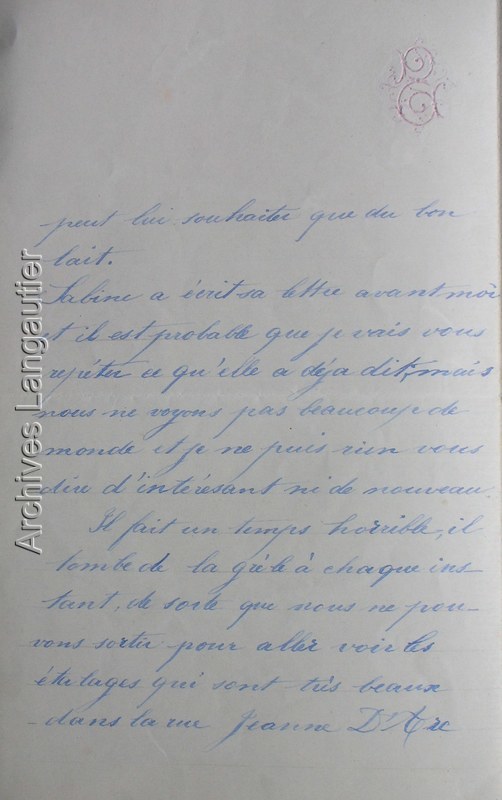 peut lui souhaiter que du bon
lait.
Sabine a écrit sa lettre avant moi
et il est probable que je vais vous
répéter ce qu'elle a déja dit, mais
nous ne voyons pas beaucoup de
monde et je ne puis rien vous
dire d'intéresant ni de nouveau.
Il fait un temps horrible, il
tombe de la grêle à chaque ins-
tant, de sorte que nous ne pou-
vons sortir pour aller voir les
étalages qui sont très beaux
dans la rue Jeanne D'Arc
Archives Langautier